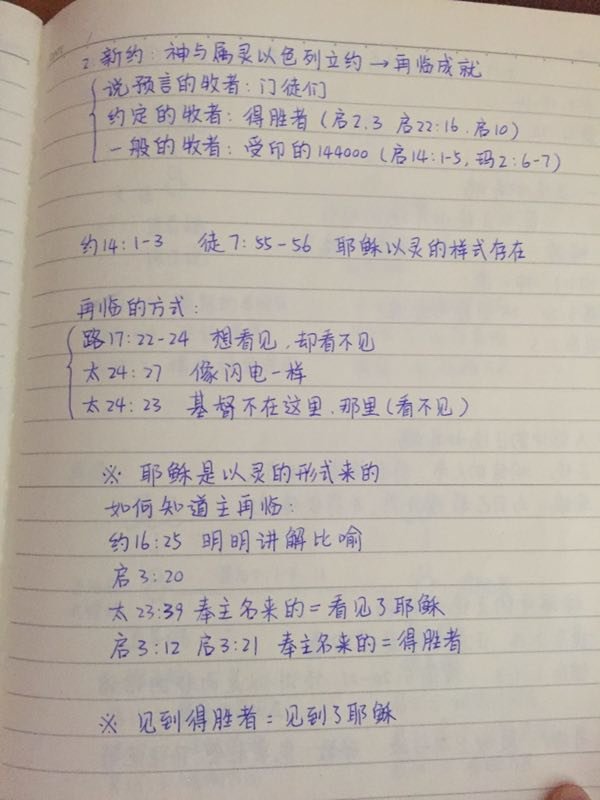 2. 新约：神与属灵以色列立约→再临成就
说预言的牧者：门徒们
约定的牧者：得胜者（启2,3 启22:16、启10）
一般的牧者：受印的144000（启14:1-5,玛2:6-7）
约14:1-3 徒7:55-56 耶稣以灵的样式存在
再临的方式：
路17:22-24 想看见,却看不见
太24:27 像闪电一样
太24:23 基督不在这里、那里（看不见）
※ 耶稣是以灵的形式来的
如何知道主再临：
约16:25 明明讲解比喻
启3:20
太23:39 奉主名来的=看见了耶稣
启3:12 启3:21 奉主名来的=得胜者
※ 见到得胜者=见到了耶稣